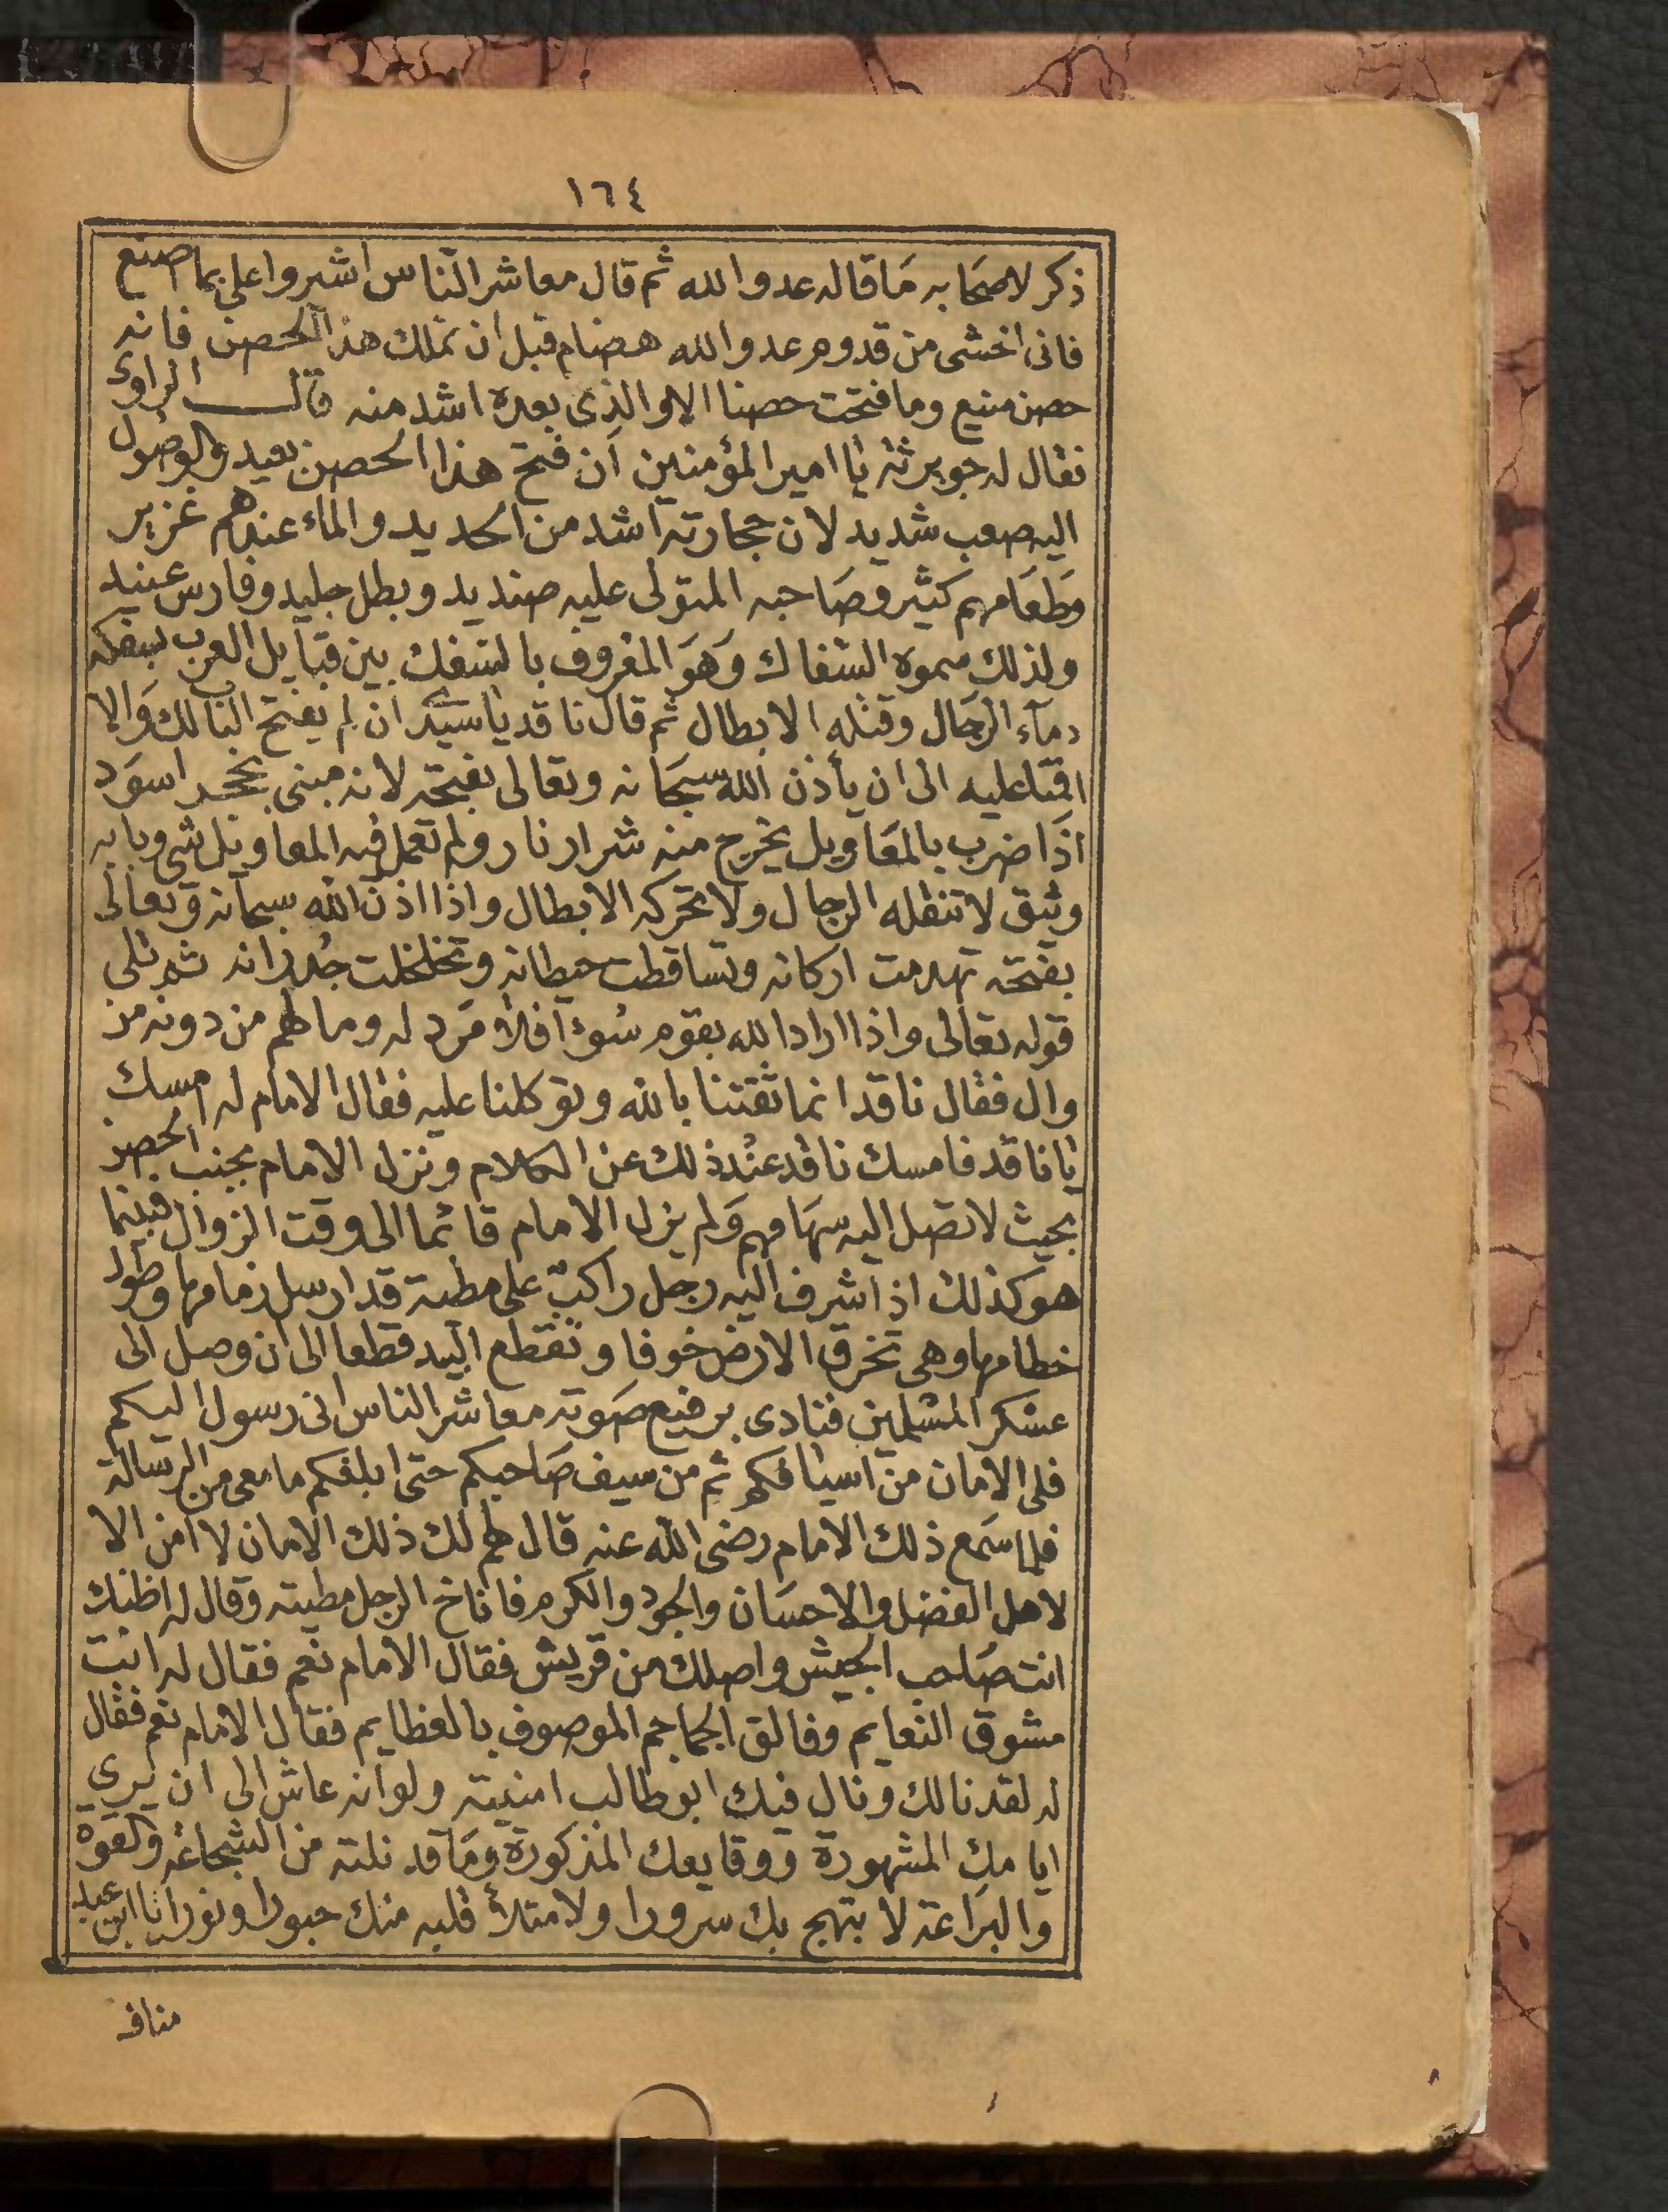 ١٦٤
ذكر لاصحابه ما قاله عدو الله ثم قال معاشر الناس اشيروا على بما اصنع
فانى اخشى من قدوم عدو الله هضام قبل ان نملك هذا الحصن فانه
حصن منيع وما فتحت حصنا الا والذى بعده اشد منه قال الراوى
فقال له جويرثة يا امير المؤمنين ان فتح هذا الحصن بعيد والوصول
اليه صعب شديد لان حجارته اشد من الحديد والماء عندهم غزير
وطعامهم كثير وصاحبه المتولى عليه صنديد وبطل جليد وفارس عنيد
ولذلك سموه السفاك وهو المعروف بالسفك بين قبايل العرب لسفكه
دمآء الرجال وقتله الابطال ثم قال ناقد يا سيدى ان لم يفتح البا لك والا
اقمنا عليه الى ان يأذن الله سبحانه وتعالى بفتحه لانه مبنى بحجر اسود
اذا ضرب بالمعاويل يخرج منه شرار نار ولم تعمل فيه المعاويل شى وبابه
وثيق لا تنقله الرجال ولا تحركه الابطال واذا اذن الله سبحانه وتعالى
بفتحه تهدمت اركانه وتساقطت حيطانه وتخلخلت جدرانه ثم تلى
قوله تعالى واذا اراد الله بقوم سوءا فلا مرد له وما لهم من دونه من
وال فقال ناقد انما ثقتنا بالله وتوكلنا عليه فقال الامام له امسك
يا ناقد فامسك ناقد عند ذلك عن الكلام ونزل الامام بجنب الحصن
بحيث لا تصل اليه سهامهم ولم يزل الامام قائما الى وقت الزوال فبينما
هو كذلك اذ اشرف اليه رجل راكب على مطية قد ارسل زمامها وطول
خطامها وهى تخرق الارض خوفا وتقطع البيد قطعا الى ان وصل الى
عسكر المسلمين فنادى برفيع صوته معاشر الناس انى رسول اليكم
فلى الامان من اسيافكم ثم من سيف صاحبكم حتى ابلغكم ما معى من الرسالة
فلما سمع ذلك الامام رضى الله عنه قال لهم لك ذلك الامان لا امن الا
لاهل الفضل والاحسان والجود والكرم فاناخ الرجل مطيته وقال له اظنك
انت صاحب الجيش واصلك من قريش فقال الامام نعم فقال له انت
مشوق النعايم وفالق الجماجم الموصوف بالعظايم فقال الامام نعم فقال
له لقد نالك ونال فيك ابو طالب امنيته ولو انه عاش الى ان يرى
ايامك المشهورة ووقايعك المذكورة وما قد نلته من الشجاعة والقوة
والبراعة لابتهج بك سرورا ولامتلأ قلبه منك حبورا ونورا يا ابن عبد
مناف